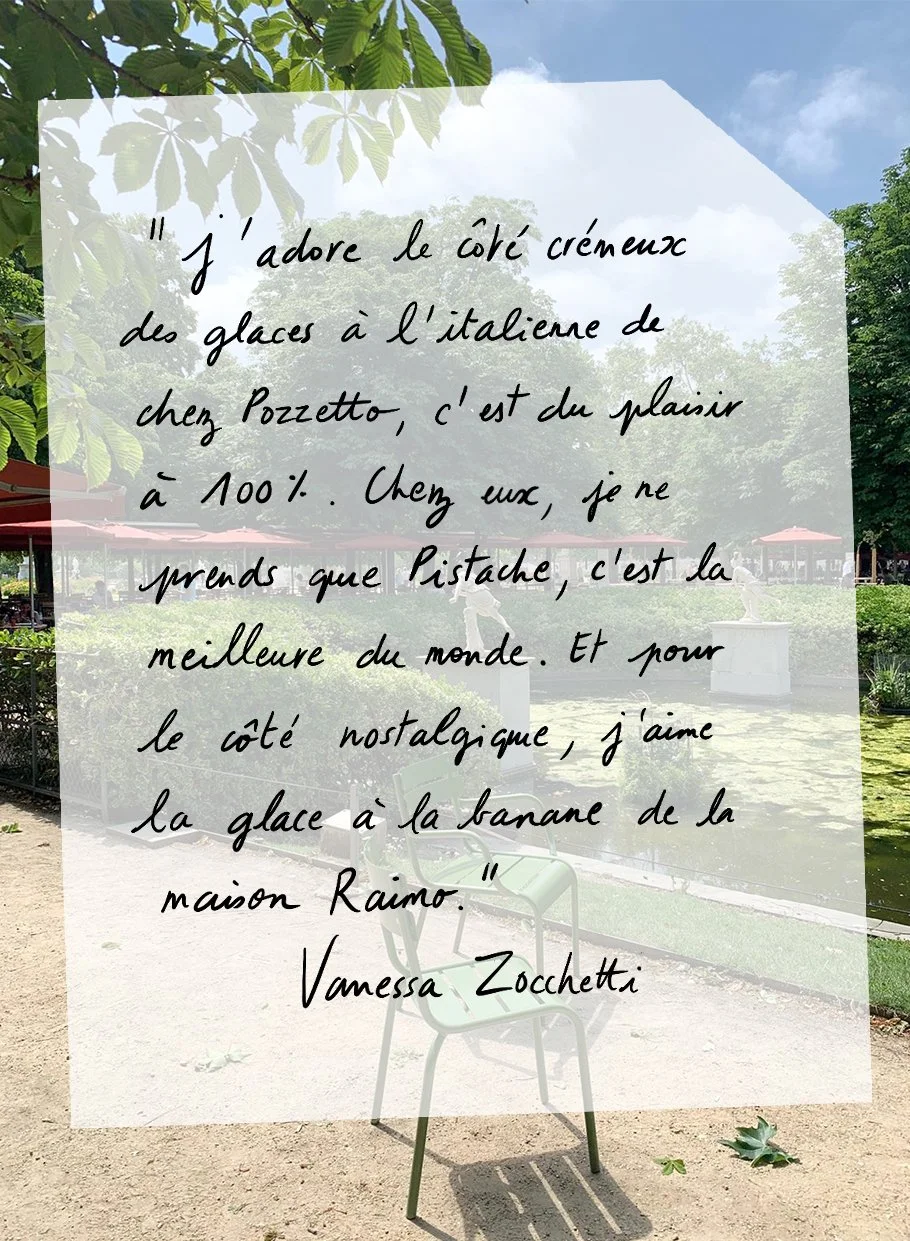 "j'adore le côté crémeux
des glaces à l'italienne de
chez Pozzetto, c'est du plaisir
à 100%. Chez eux, je ne
prends que Pistache, c'est la
meilleure du monde. Et pour
le côté nostalgique, j'aime
la glace à la banane de la
maison Raimo."
Vanessa Zocchetti